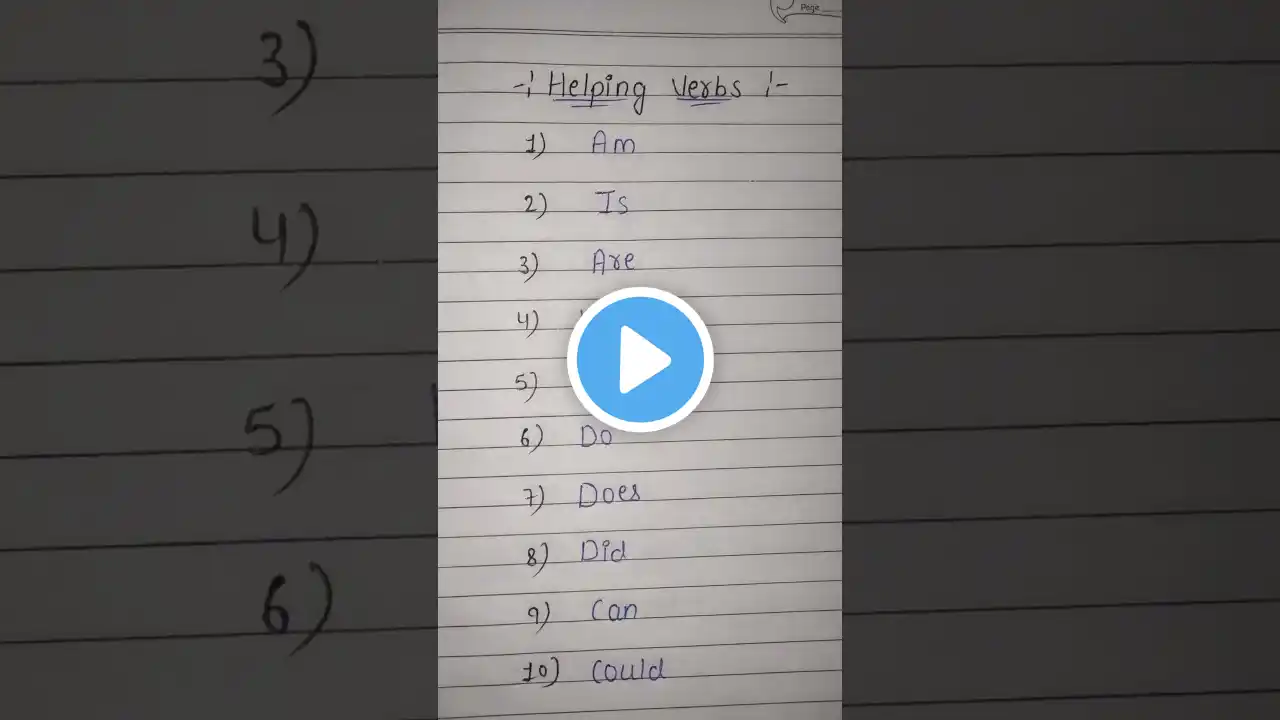 Page
-: Helping Verbs :-
1) Am
2) Is
3) Are
4)
5)
6) Do
7) Does
8) Did
9) Can
10) Could
3)
4)
5)
6)